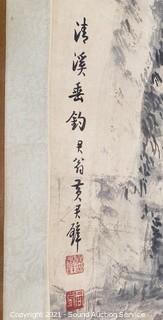 清溪垂釣 君翁黃君璧
Copyright 2021 - Sound Auction Service